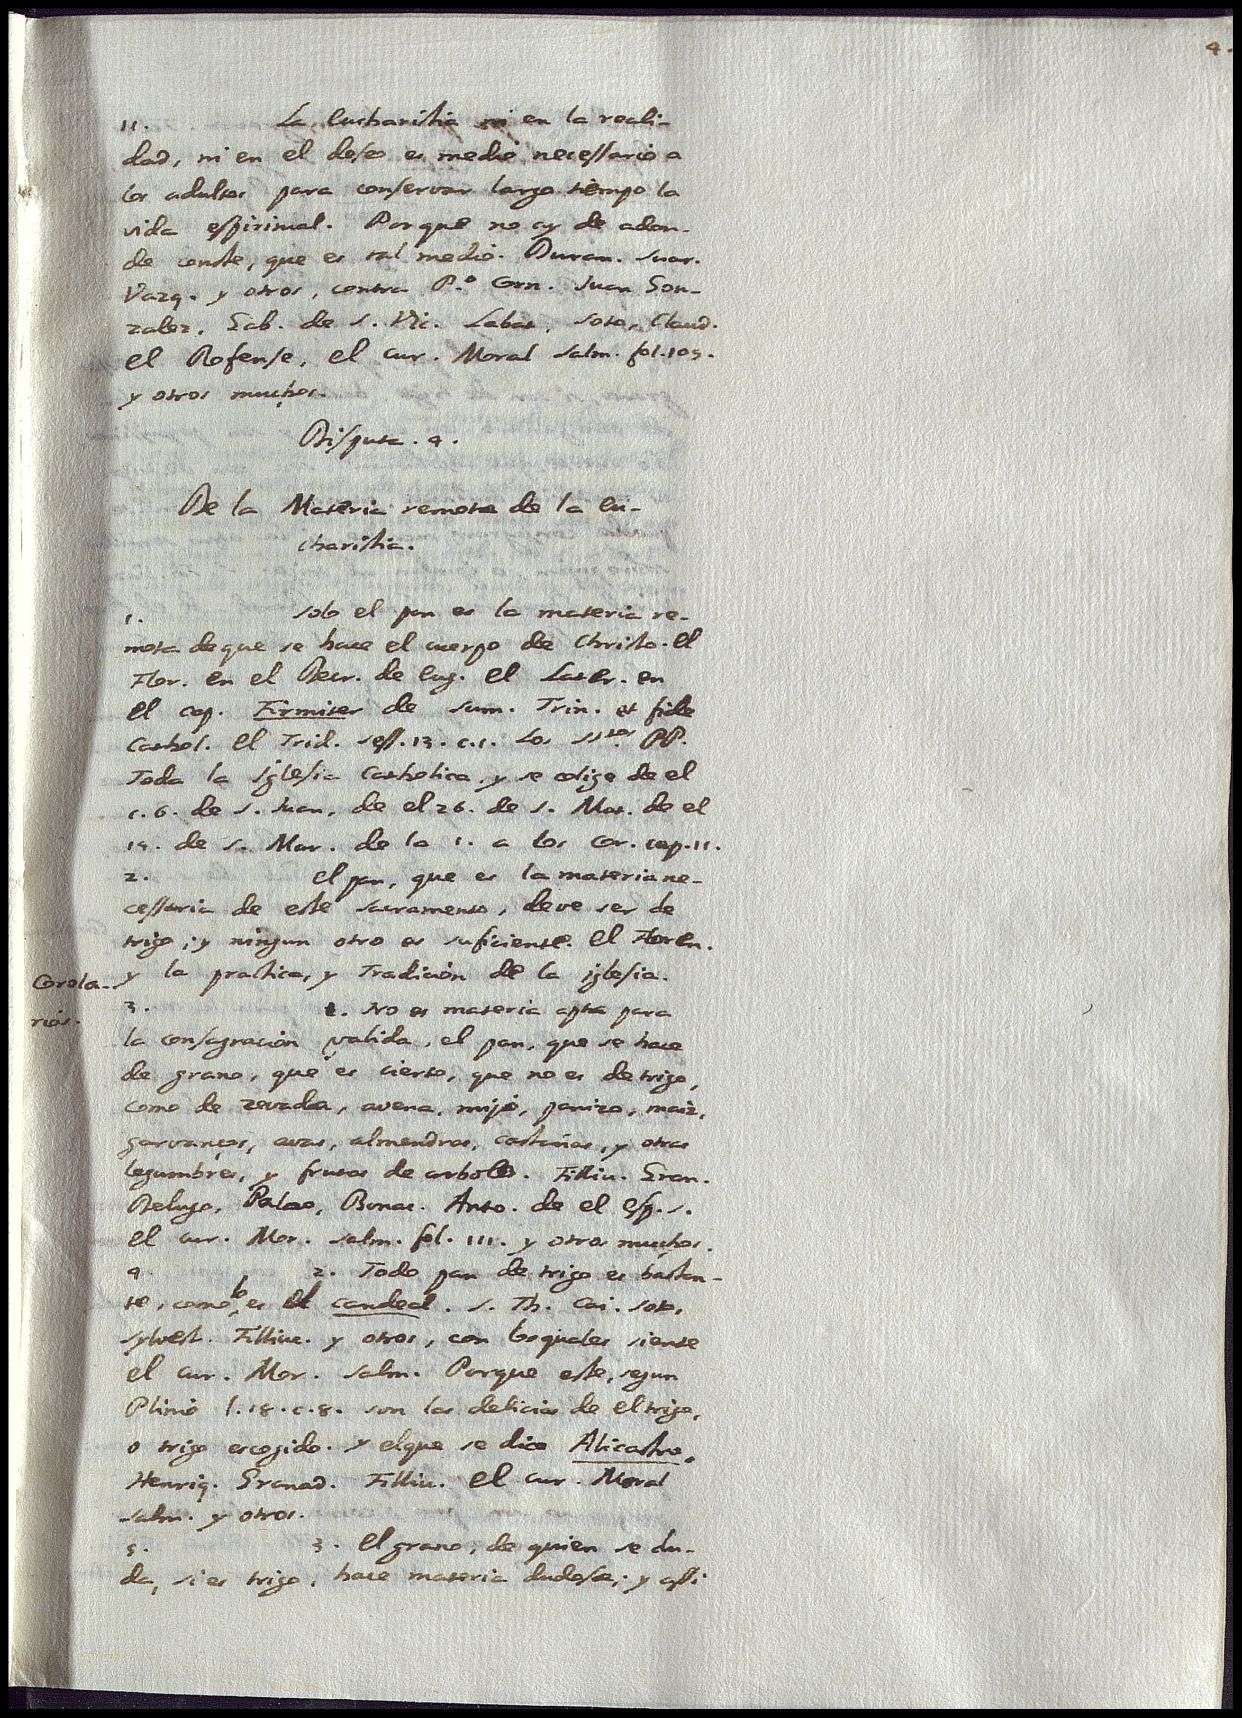 4.
11. La Eucharistia ni en la reali-
dad, ni en el deseo es medio necessario a
los adultos para conservar largo tiempo la
vida espiritual. Porque no ay de adon-
de conste, que es tal medio. Duran. Suar.
Vazq. y otros, contra P.º Grn. Juan Gon-
zalez, Gab. de S. Vic. Labat, Soto, Claud.
el Rofense, el cur. Moral Salm. fol. 109.
y otros muchos.
Disputa. 4.
De la Materia remota de la Eu-
charistia.
1. Solo el pan es la materia re-
mota de que se hace el cuerpo de Christo. El
Flor. en el Decr. de Eug. el Later. en
el cap. Firmiter de sum. Trin. et fide
Cathol. El Trid. sess. 13. c.1. Los SS.tos PP.
Toda la Iglesia Catholica, y se colige de el
c. 6. de S. Juan, de el 26. de S. Mat. de el
14. de S. Mar. de la 1. a los Cor. cap. 11.
2. El pan, que es la materia ne-
cessaria de este sacramento, deve ser de
trigo; y ningun otro es suficiente. El Floren.
y la practica, y Tradicion de la iglesia.
Corola-
rios.
3. 1. No es materia apta para
la consagracion valida, el pan, que se hace
de grano, que es cierto, que no es de trigo,
como de zevada, avena, mijo, panizo, maiz,
garvanços, avas, almendras, castañas, y otras
legumbres, y frutas de arboles. Filliu. Gran.
Delugo, Palao, Bonac. Anto. de el Esp. S.
el cur. Mor. Salm. fol. 111. y otros muchos.
4. 2. Todo pan de trigo es bastan-
te, como lo es el candeal. S. Th. Cai. Soto,
Sylvest. Filliuc. y otros, con los quales siente
el cur. Mor. Salm. Porque este, segun
Plinio l. 18. c. 8. son las delicias de el trigo,
o trigo escogido. y el que se dice Alicastro.
Henriq. Granad. Filliu. el cur. Moral
Salm. y otros.
5. 3. El grano, de quien se du-
da, si es trigo, hace materia dudosa; y assi